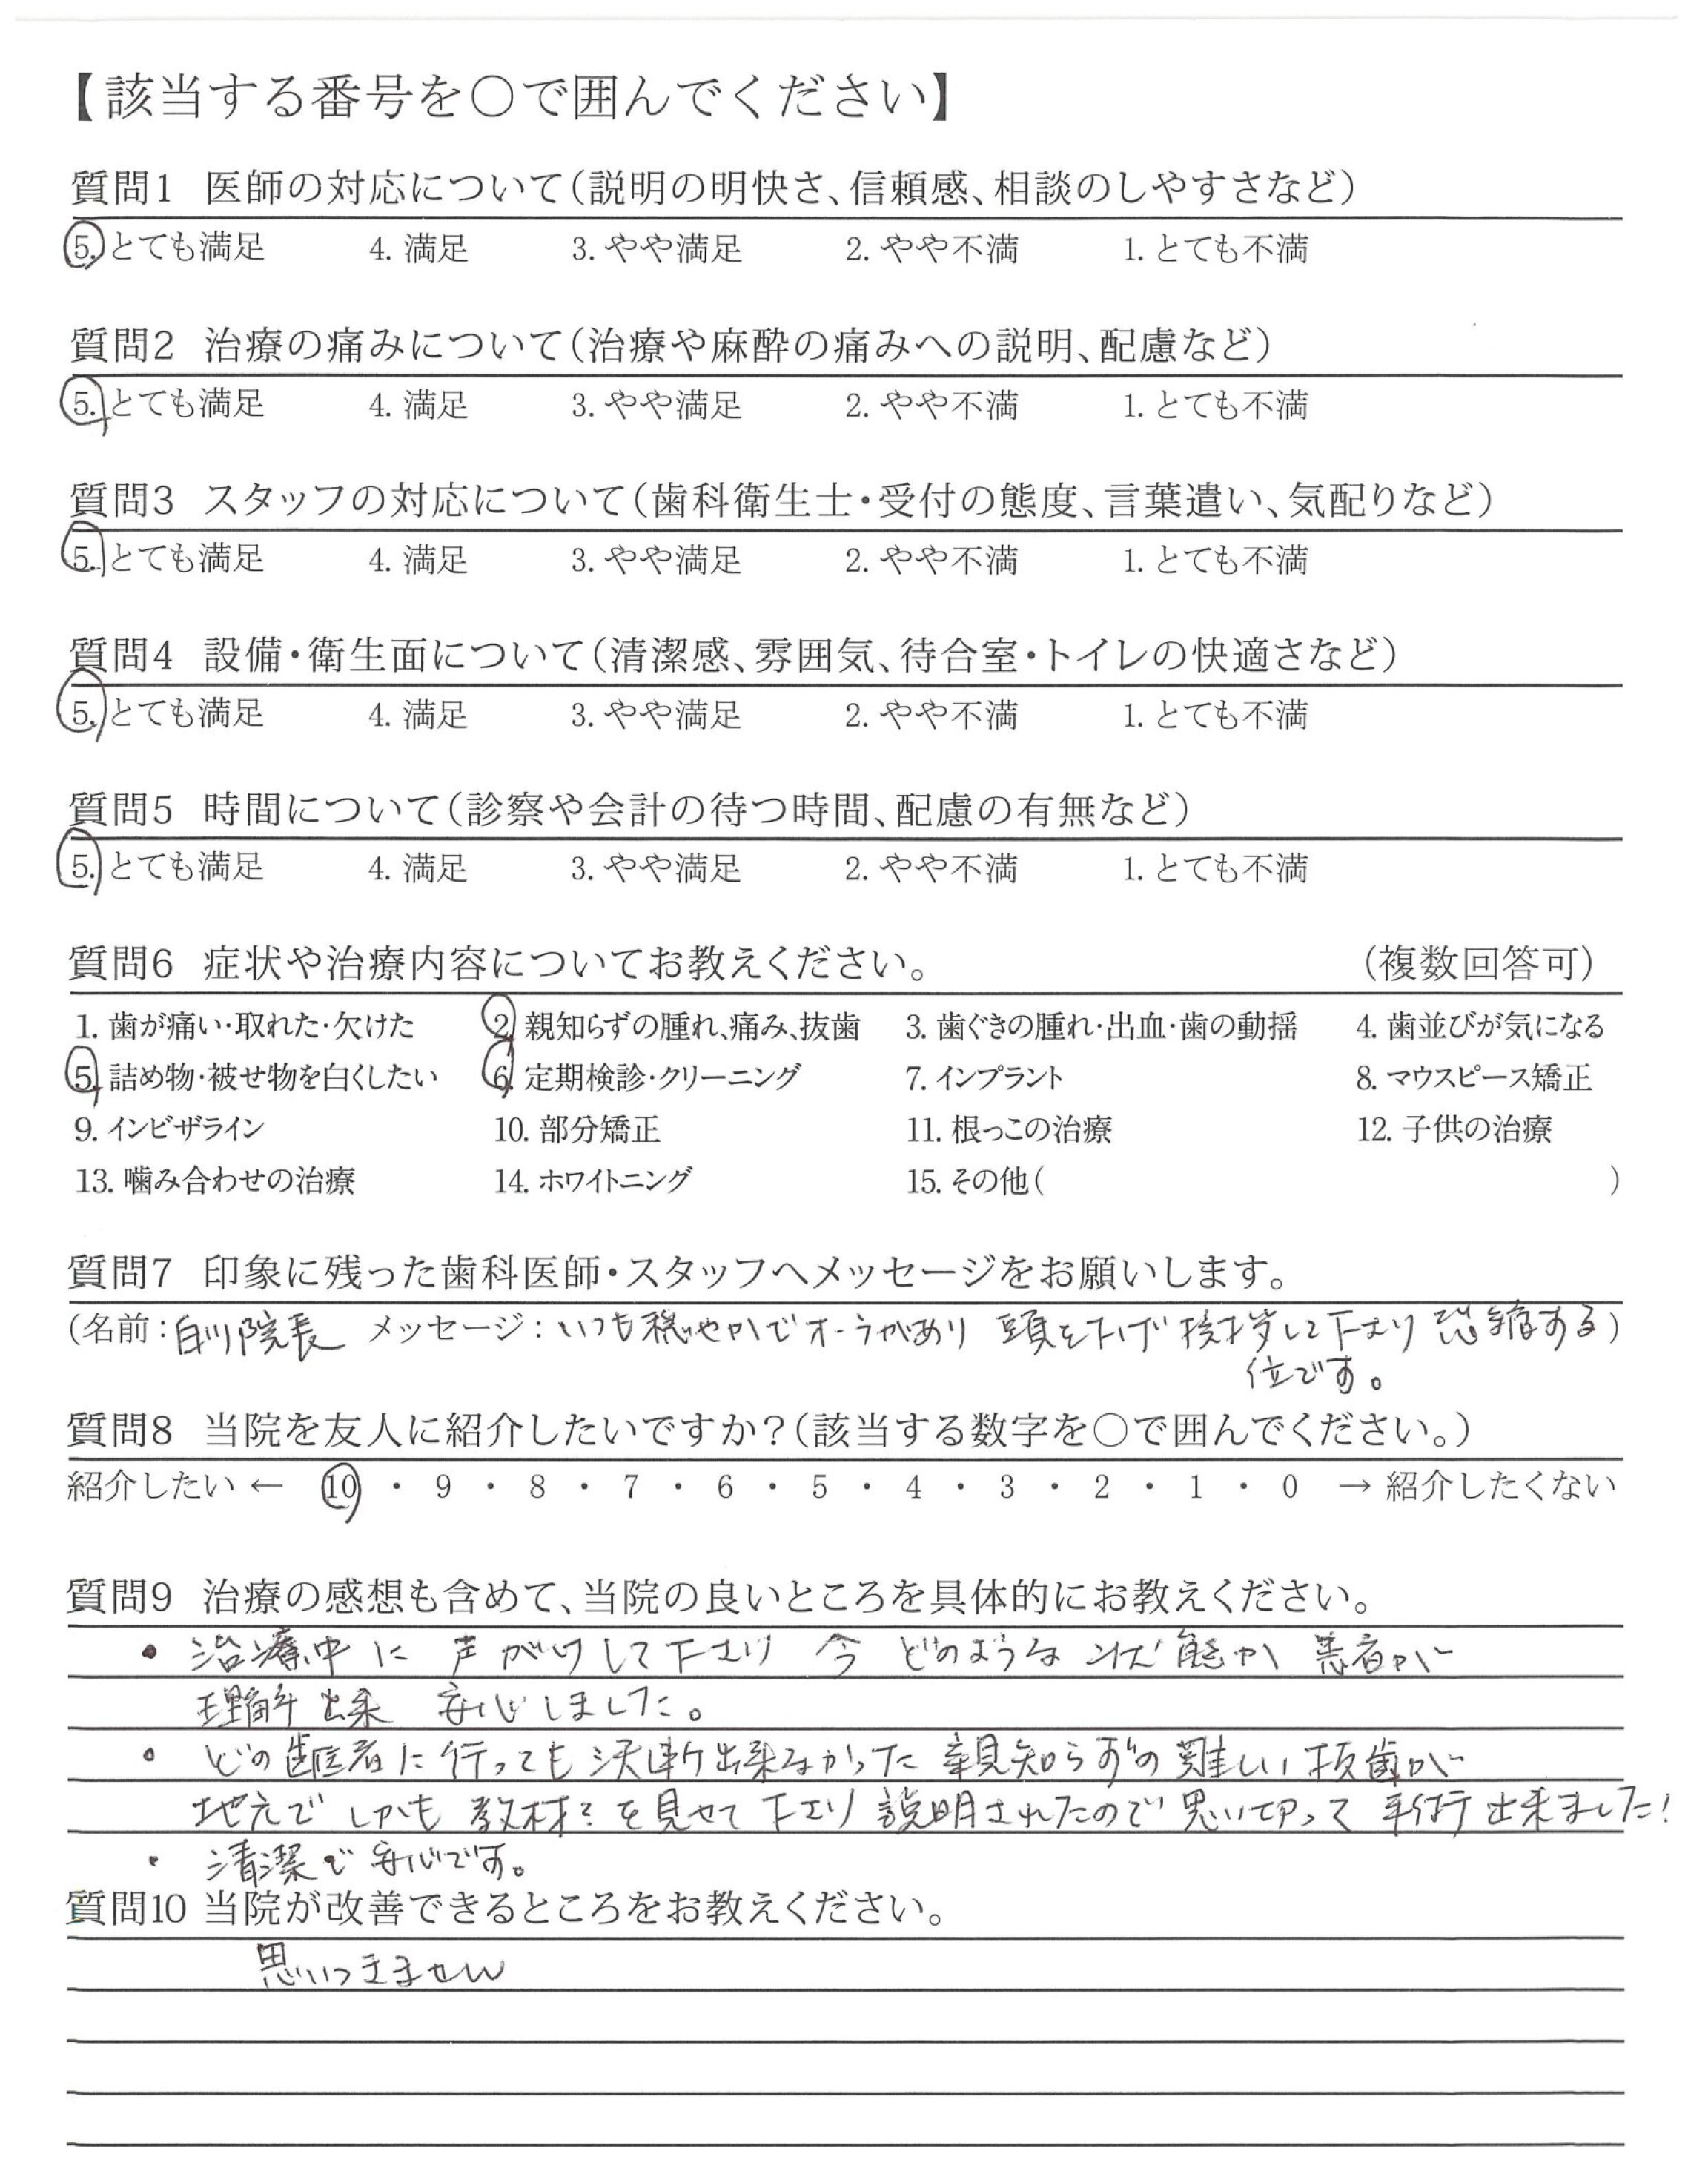 【該当する番号を〇で囲んでください】
質問1 医師の対応について(説明の明快さ、信頼感、相談のしやすさなど)
5. とても満足 4. 満足 3. やや満足 2. やや不満 1. とても不満
質問2 治療の痛みについて(治療や麻酔の痛みへの説明、配慮など)
5. とても満足 4. 満足 3. やや満足 2. やや不満 1. とても不満
質問3 スタッフの対応について(歯科衛生士・受付の態度、言葉遣い、気配りなど)
5. とても満足 4. 満足 3. やや満足 2. やや不満 1. とても不満
質問4 設備・衛生面について(清潔感、雰囲気、待合室・トイレの快適さなど)
5. とても満足 4. 満足 3. やや満足 2. やや不満 1. とても不満
質問5 時間について(診察や会計の待つ時間、配慮の有無など)
5. とても満足 4. 満足 3. やや満足 2. やや不満 1. とても不満
質問6 症状や治療内容についてお教えください。 (複数回答可)
1. 歯が痛い・取れた・欠けた 2. 親知らずの腫れ、痛み、抜歯 3. 歯ぐきの腫れ・出血・歯の動揺 4. 歯並びが気になる
5. 詰め物・被せ物を白くしたい 6. 定期検診・クリーニング 7. インプラント 8. マウスピース矯正
9. インビザライン 10. 部分矯正 11. 根っこの治療 12. 子供の治療
13. 噛み合わせの治療 14. ホワイトニング 15. その他( )
質問7 印象に残った歯科医師・スタッフへメッセージをお願いします。
(名前:白川院長 メッセージ:いつも穏やかでオーラがあり 頭を下げ挨拶して下さり 恐縮する)
位です。
質問8 当院を友人に紹介したいですか?(該当する数字を〇で囲んでください。)
紹介したい ← 10 ・ 9 ・ 8 ・ 7 ・ 6 ・ 5 ・ 4 ・ 3 ・ 2 ・ 1 ・ 0 → 紹介したくない
質問9 治療の感想も含めて、当院の良いところを具体的にお教えください。
・治療中に 声がけして下さり 今 どのような状態か 患者が
理解出来 安心しました。
・どの歯医者に行っても決断出来なかった 親知らずの難しい抜歯が
地元で しかも 教材?を見せて下さり 説明されたので 思い切って 手術 出来ました!
・清潔で安心です。
質問10 当院が改善できるところをお教えください。
思いつきません